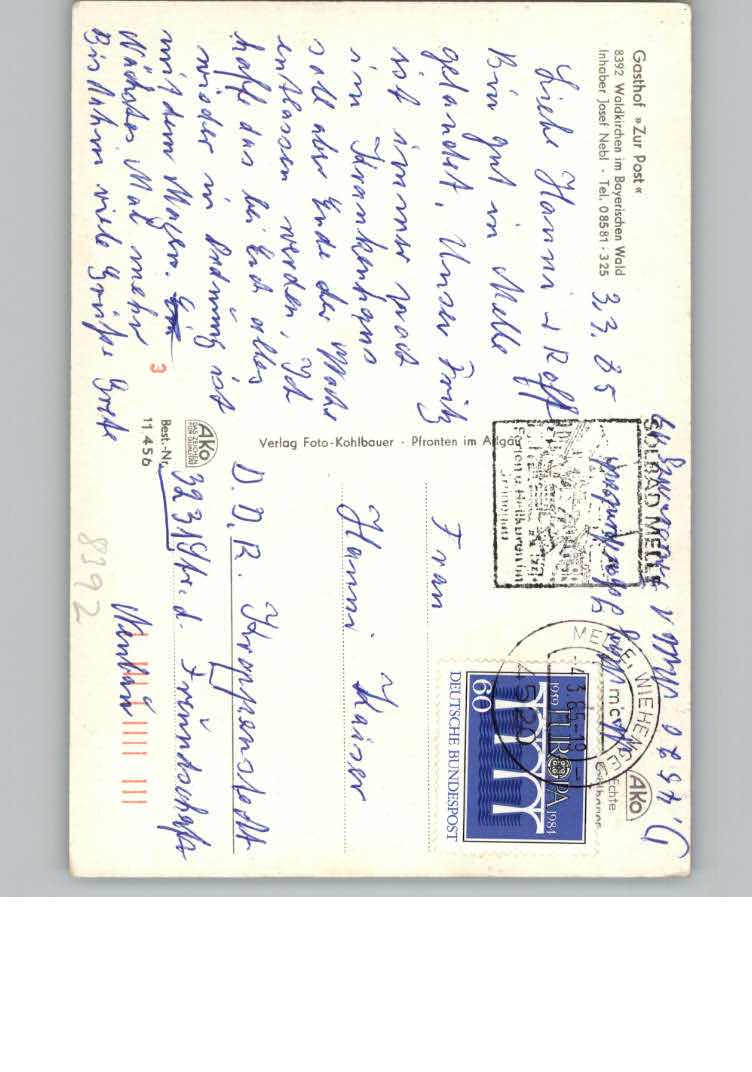 Gasthof »Zur Post«
8392 Waldkirchen im Bayerischen Wald
Inhaber Josef Nebl · Tel. 08581 · 325
3.3.85
Liebe Hanni u Rolf
Bin gut in Melle
gelandet. Unser Fritz
ist immer noch
im Krankenhaus
soll aber Ende der Woche
entlassen werden. Ich
hoffe das bei Euch alles
wieder in Ordnung ist
mit dem Magen.
Nächstes Mal mehr
Bis dahin viele Grüße Grete
3
Verlag Foto-Kohlbauer · Pfronten im Allgäu
AKO
DAS ZEICHEN FÜR QUALITÄT
Best.-Nr.
11 456
SOLBAD MELLE
MELLE, WIEHENGEB
-4.3.85-18
4520
1959 EUROPA 1984
60
DEUTSCHE BUNDESPOST
AKO
Echte
D. 4520 Melle 1
Frau
Hanni Kaiser
D.D.R. Kroppenstedt
3231 Str. d. Freundschaft
Neubau
8392